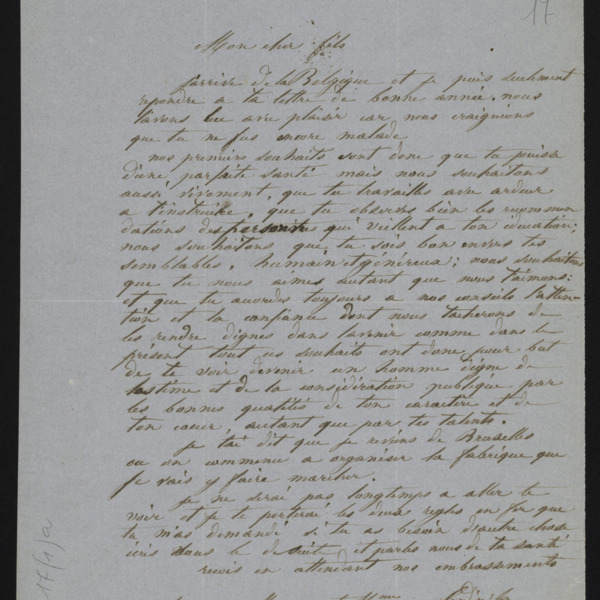 17
Mon cher fils
J'arrive de la Belgique et je puis seulement
repondre a ta lettre de bonne année. nous
l'avons lu avec plaisir car nous craignions
que tu ne fus encore malade
nos premiers souhaits sont donc que tu puisse
d'une parfaite santé mais nous souhaitons
aussi vivement, que tu travailles avec ardeur
a t'instruire, que tu observes bien les recommen
dations des personnes qui veillent a ton éducation;
nous souhaitons que tu sois bon envers tes
semblables, humain et généreux; nous souhaitons
que tu nous aimes autant que nous t'aimons;
et que tu accordes toujours a nos conseils l'atten-
tion et la confiance dont nous tacherons de
les rendre dignes dans l'avenir comme dans le
présent tout ces souhaits ont donc pour but
de te voir devenir un homme digne de
l'estime et de la considération publique par
les bonnes qualités de ton caractère et de
ton coeur, autant que par tes talents.
je t'ai dit que je reviens de Bruxelles
ou on commence a organiser la fabrique que
je vais y faire marcher.
je ne serai pas longtemps a aller te
voir et je te porterai les deux regles en fer que
tu m'as demandé si tu as besoin d'autre chose
écris nous le de suite et parles nous de ta santé
recois en attendant nos embrassements
17(1)a